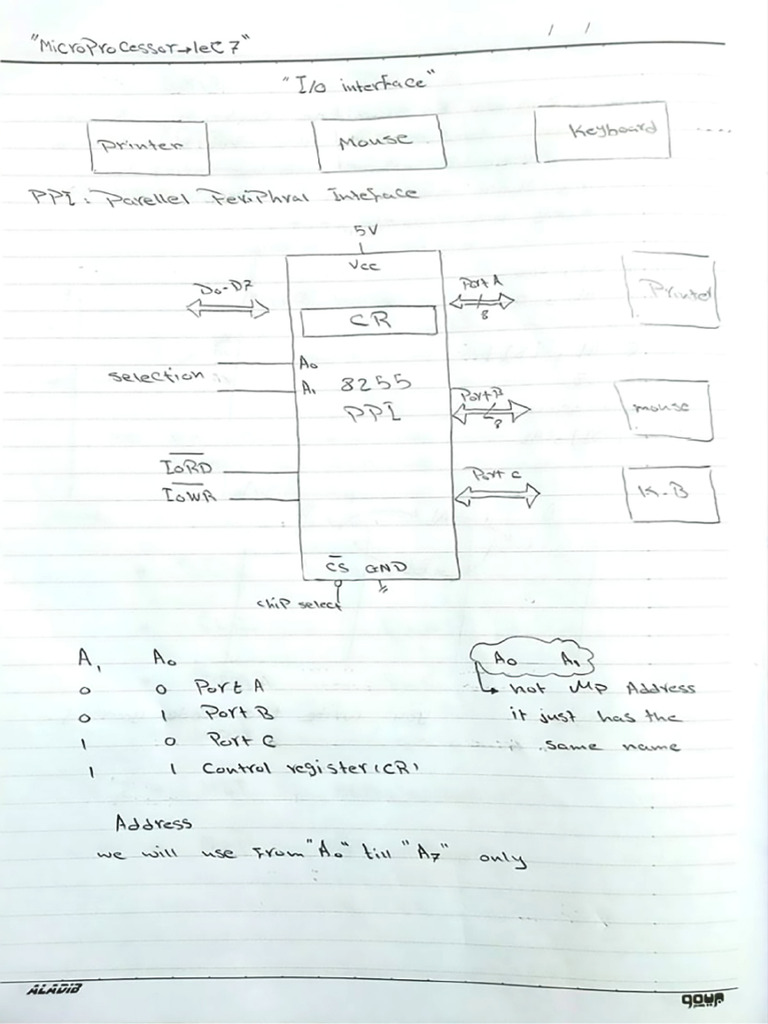 "MicroProcessor→lec 7"
/ /
"I/o interface"
Printer Mouse Keyboard ....
PPI: Parellel Feriphral Inteface
5V
Vcc
D0-D7
Port A
8
Printer
CR
selection
A0
A1
8255
PPI
Port B
8
mouse
IORD
IOWR
Port C
K-B
CS GND
chip select
A1 A0
0 0 Port A
0 1 Port B
1 0 Port C
1 1 Control register (CR)
A0 A1
not MP Address
it just has the
same name
Address
we will use From "A0" till "A7" only
ALADIB